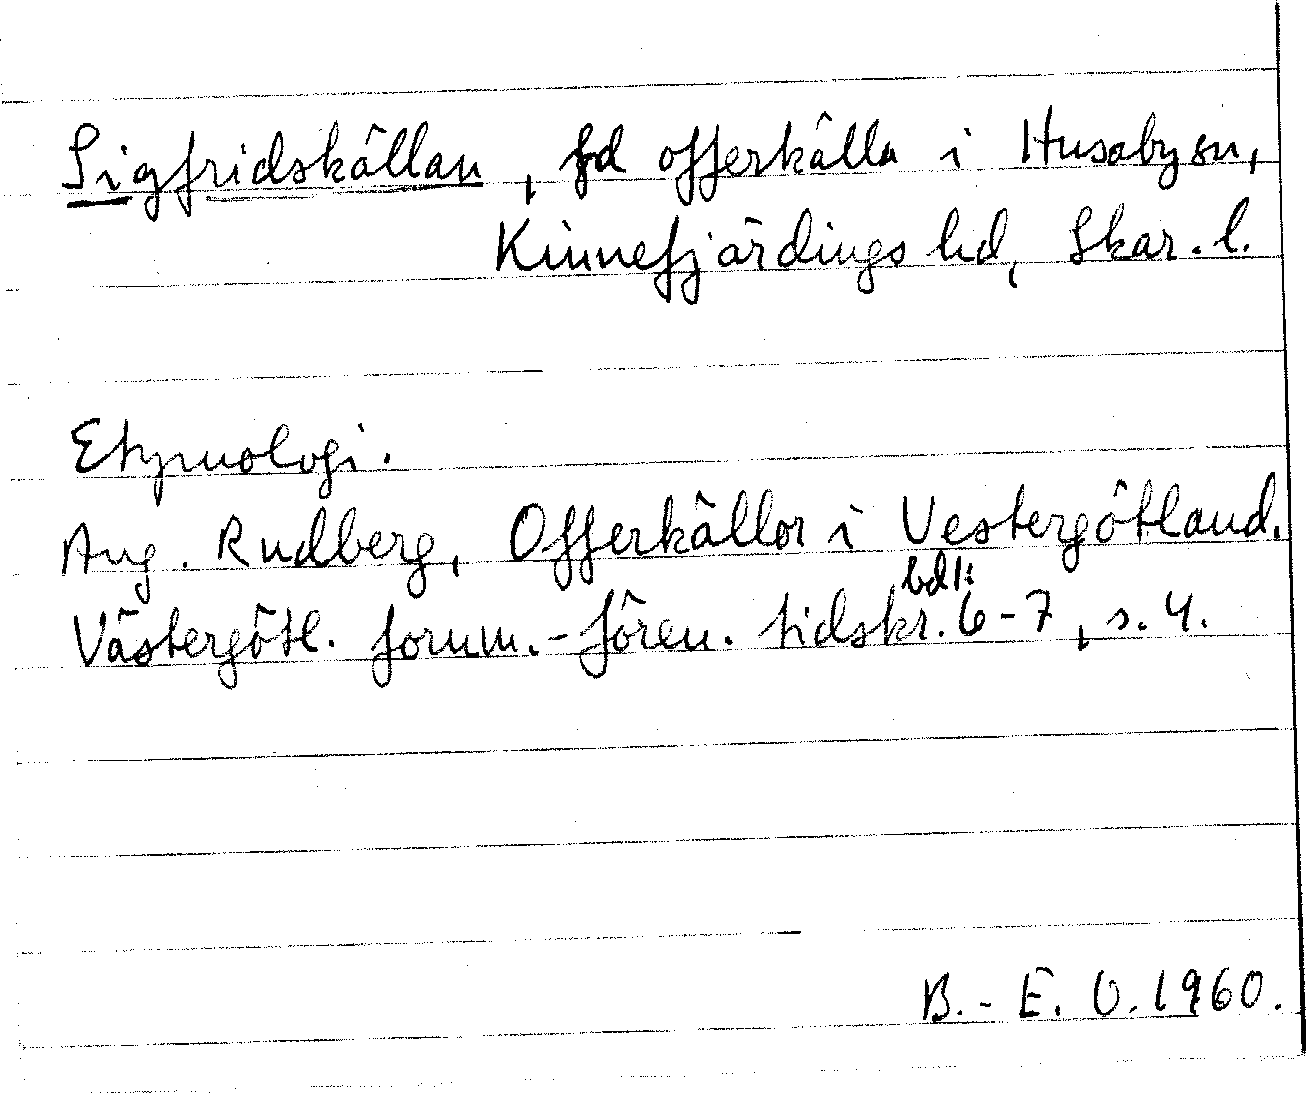 Sigfridskällan, fd offerkälla i Husaby sn,
Kinnefjärdings hd, Skar. l.
Etymologi.
Aug. Rudberg, Offerkällor i Vestergötland.
Västergötl. fornm.-fören. tidskr. bd 1: 6-7, s. 4.
B.-E. O. 1960.